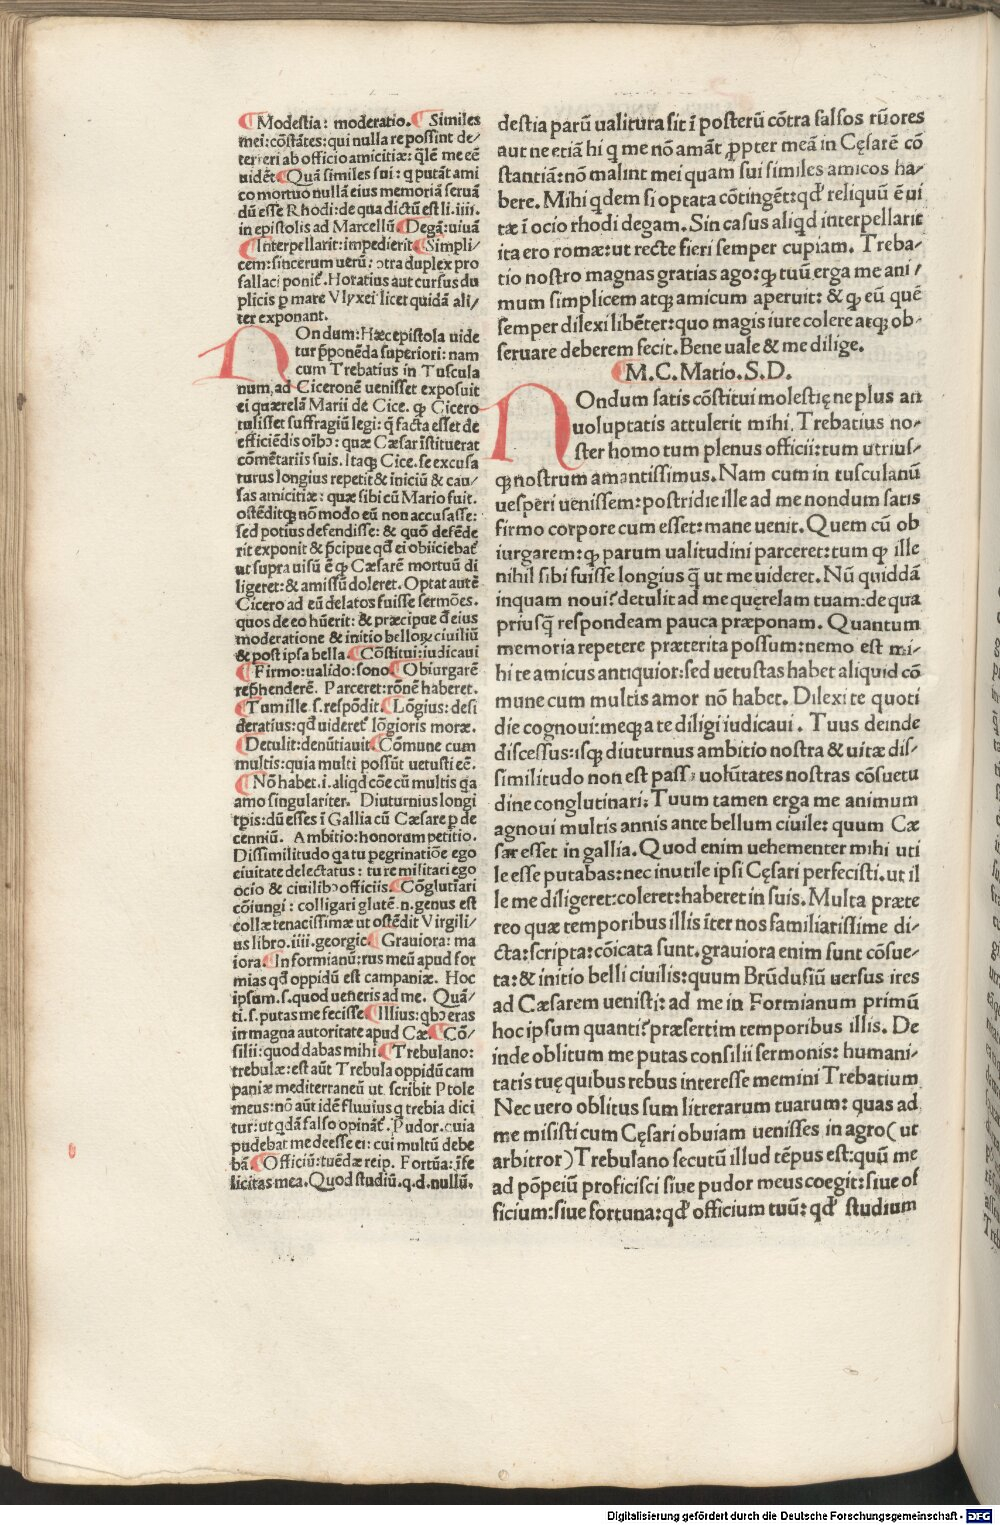 ¶Modestia: moderatio. ¶Similes
mei:cõstãtes:qui nulla re possint de/
terreri ab officio amicitiæ: q̃lẽ me eẽ
uidẽt¶Quã similes sui: q putãt ami
co mortuo nullã eius memoriã seruã
dũ esse Rhodi:de qua dictũ est li.iiii.
in epistolis ad Marcellũ¶Degã:uiuã
¶Interpellarit:impedierit¶Simpli/
cem:sincerum uerũ: ↄtra duplex pro
fallaci ponit̃.Horatius aut cursus du
plicis p mare Vlyxei licet quidã ali/
ter exponant.
NOndum:Hæc epistola uide
tur p̃ponẽda superiori: nam
cum Trebatius in Tuscula
num,ad Ciceronẽ uenisset exposuit
ei quærelã Marii de Cice. ꝙ Cicero
tulisset suffragiũ legi: q̃ facta esset de
efficiẽdis oĩbↄ: quæ Cæsar ĩstituerat
cõmẽtariis suis. Itaqꝫ Cice.se excusa
turus longius repetit & iniciũ & cau/
sas amicitiæ: quæ sibi cũ Mario fuit.
ostẽditqꝫ nõ modo eũ non accusasse:
sed potius defendisse: & quõ defẽde
rit exponit & p̃cipue qđ ei obiiciebat̃
ut supra uisũ ẽ ꝙ Cæsarẽ mortuũ di
ligeret:& amissũ doleret. Optat autẽ
Cicero ad eũ delatos fuisse sermões.
quos de eo hũerit: & præcipue đ eius
moderatione & initio belloꝝ ciuiliũ
& post ipsa bella ¶Cõstitui:iudicaui
¶Firmo:ualido:sono¶Obiurgarẽ
rep̃henderẽ. Parceret:rõnẽ haberet.
¶Tum ille s.respõdit.¶Lõgius: desi
deratius:qđ uideret̃ lõgioris moræ.
¶Detulit:denũtiauit¶Cõmune cum
multis:quia multi possũt uetusti eẽ.
¶Nõ habet.i.aliqd cõe cũ multis qa
amo singulariter. Diuturnius longi
tp̃is:dũ esses ĩ Gallia cũ Cæsare p de
cenniũ. Ambitio:honorum petitio.
Dissimilitudo qa tu pegrinatiõe ego
ciuitate delectatus: tu re militari ego
ocio & ciuilibↄ officiis.¶Cõglutiari
cõiungi: colligari glutẽ.n.genus est
collæ tenacissimæ ut ostẽdit Virgili/
us libro.iiii.georgic¶Grauiora: ma
iora.¶In formianũ:rus meũ apud for
mias qđ oppidũ est campaniæ. Hoc
ipsum.s.quod ueneris ad me. Quã/
ti.s.putas me fecisse¶Illius:qbↄ eras
in magna autoritate apud Cæ.¶Cõ/
silii:quod dabas mihi ¶Trebulano:
trebulæ:est aũt Trebula oppidũ cam
paniæ mediterraneũ ut scribit Ptole
meus:nõ aũt idẽ fluuius q trebia dici
tur:ut qdã falso opinãt̃. Pudor.cuia
pudebat me deesse ei: cui multũ debe
bã.¶Officiũ:tuẽdæ reip. Fortũa: ĩfe
licitas mea. Quod studiũ.q.d.nullũ.
destia parũ ualitura sit ĩ posterũ cõtra falsos rũores
aut ne etiã hi q me nõ amãt ꝓpter meã in Cęsarẽ cõ
stantiã:nõ malint mei quam sui similes amicos ha/
bere. Mihi qdem si optata cõtingẽt:qđ reliquũ ẽ ui
tæ ĩ ocio rhodi degam. Sin casus aliqd interpellarit
ita ero romæ: ut recte fieri semper cupiam. Treba/
tio nostro magnas gratias ago:ꝙ tuũ erga me ani/
mum simplicem atqꝫ amicum aperuit: & ꝙ eũ quẽ
semper dilexi libẽter:quo magis iure colere atqꝫ ob/
seruare deberem fecit. Bene uale & me dilige.
¶M.C.Matio.S.D.
NOndum satis cõstitui molestię ne plus an
uoluptatis attulerit mihi Trebatius no/
ster homo tum plenus officii:tum utrius/
qꝫ nostrum amantissimus. Nam cum in tusculanũ
uesperi uenissem:postridie ille ad me nondum satis
firmo corpore cum esset: mane uenit. Quem cũ ob
iurgarem:ꝙ parum ualitudini parceret:tum ꝙ ille
nihil sibi fuisse longius q̃ ut me uideret. Nũ quiddã
inquam noui? detulit ad me quęrelam tuam:de qua
priusq̃ respondeam pauca præponam. Quantum
memoria repetere præterita possum:nemo est mi/
hi te amicus antiquior:sed uetustas habet aliquid cõ
mune cum multis amor nõ habet. Dilexi te quoti
die cognoui:meqꝫ a te diligi iudicaui. Tuus deinde
discessus:isqꝫ diuturnus ambitio nostra & uitæ dis/
similitudo non est passa uolũtates nostras cõsuetu
dine conglutinari: Tuum tamen erga me animum
agnoui multis annis ante bellum ciuile: quum Cæ
sar esset in gallia. Quod enim uehementer mihi uti
le esse putabas: nec inutile ipsi Cęsari perfecisti. ut il
le me diligeret:coleret:haberet in suis. Multa præte
reo quæ temporibus illis ĩter nos familiarissime di/
cta:scripta:cõicata sunt. grauiora enim sunt cõsue/
ta:& initio belli ciuilis: quum Brũdusiũ uersus ires
ad Cæsarem uenisti: ad me in Formianum primũ
hoc ipsum quanti? præsertim temporibus illis. De
inde oblitum me putas consilii sermonis: humani/
tatis tuę quibus rebus interesse memini Trebatium
Nec uero oblitus sum litterarum tuarum: quas ad
me misisti cum Cęsari obuiam uenisses in agro( ut
arbitror)Trebulano secutũ illud tẽpus est:quũ me
ad põpeiũ proficisci siue pudor meus coegit: siue of
ficium:siue fortuna:qđ officium tuũ: qđ studium
Digitalisierung gefördert durch die Deutsche Forschungsgemeinschaft - DFG